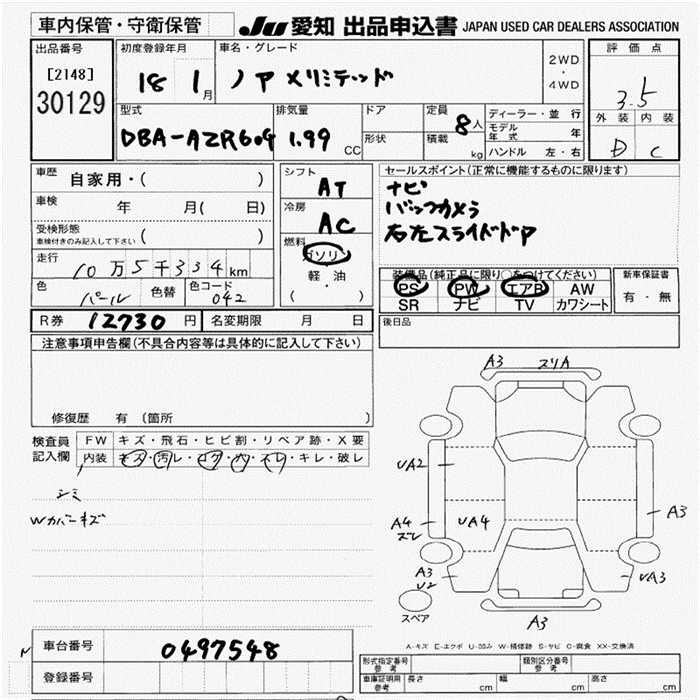 車内保管・守衛保管 JU 愛知 出品申込書 JAPAN USED CAR DEALERS ASSOCIATION
出品番号 初度登録年月 車名・グレード 2WD・4WD 評価点
[2148] 18 1月 ノア メリミテッド 3.5
30129
型式 排気量 ドア 定員 8人 ディーラー・並行 外装 内装
DBA-AZR60G 1.99 CC 形状 積載 kg モデル年式 年 D C
ハンドル 左・右
車歴 自家用・( ) シフト AT セールスポイント(正常に機能するものに限ります)
車検 年 月( 日) 冷房 AC ナビ
バックカメラ
受検形態 ( ) 右左スライドドア
車検付きのみ記入して下さい
走行 10万5千334km 燃料 ガソリン 軽・油 ( ・ )
装備品(純正品に限り○をつけてください) 新車保証書
色 パール 色替 色コード 042 PS PW エアB AW 有・無
SR ナビ TV カワシート
R券 12730円 名変期限 月 日 後日品
注意事項申告欄(不具合内容等は具体的に記入して下さい)
修復歴 有 (箇所
検査員記入欄 FW キズ・飛石・ヒビ割・リペア跡・X要
内装 キズ・汚レ・コゲ・穴・スレ・キレ・破レ
シミ
Wカバーキズ
A3 スリA
UA2
A4 ズレ UA4 A3
A3 U2 UA3
スペア A3
A-キズ E-エクボ U-凹み W-補修跡 S-サビ C-腐食 XX-交換済
車台番号 0497548
登録番号
形式指定番号 参考 類別区分番号 参考
車庫証明用 参考 長さ cm 幅 cm 高さ cm